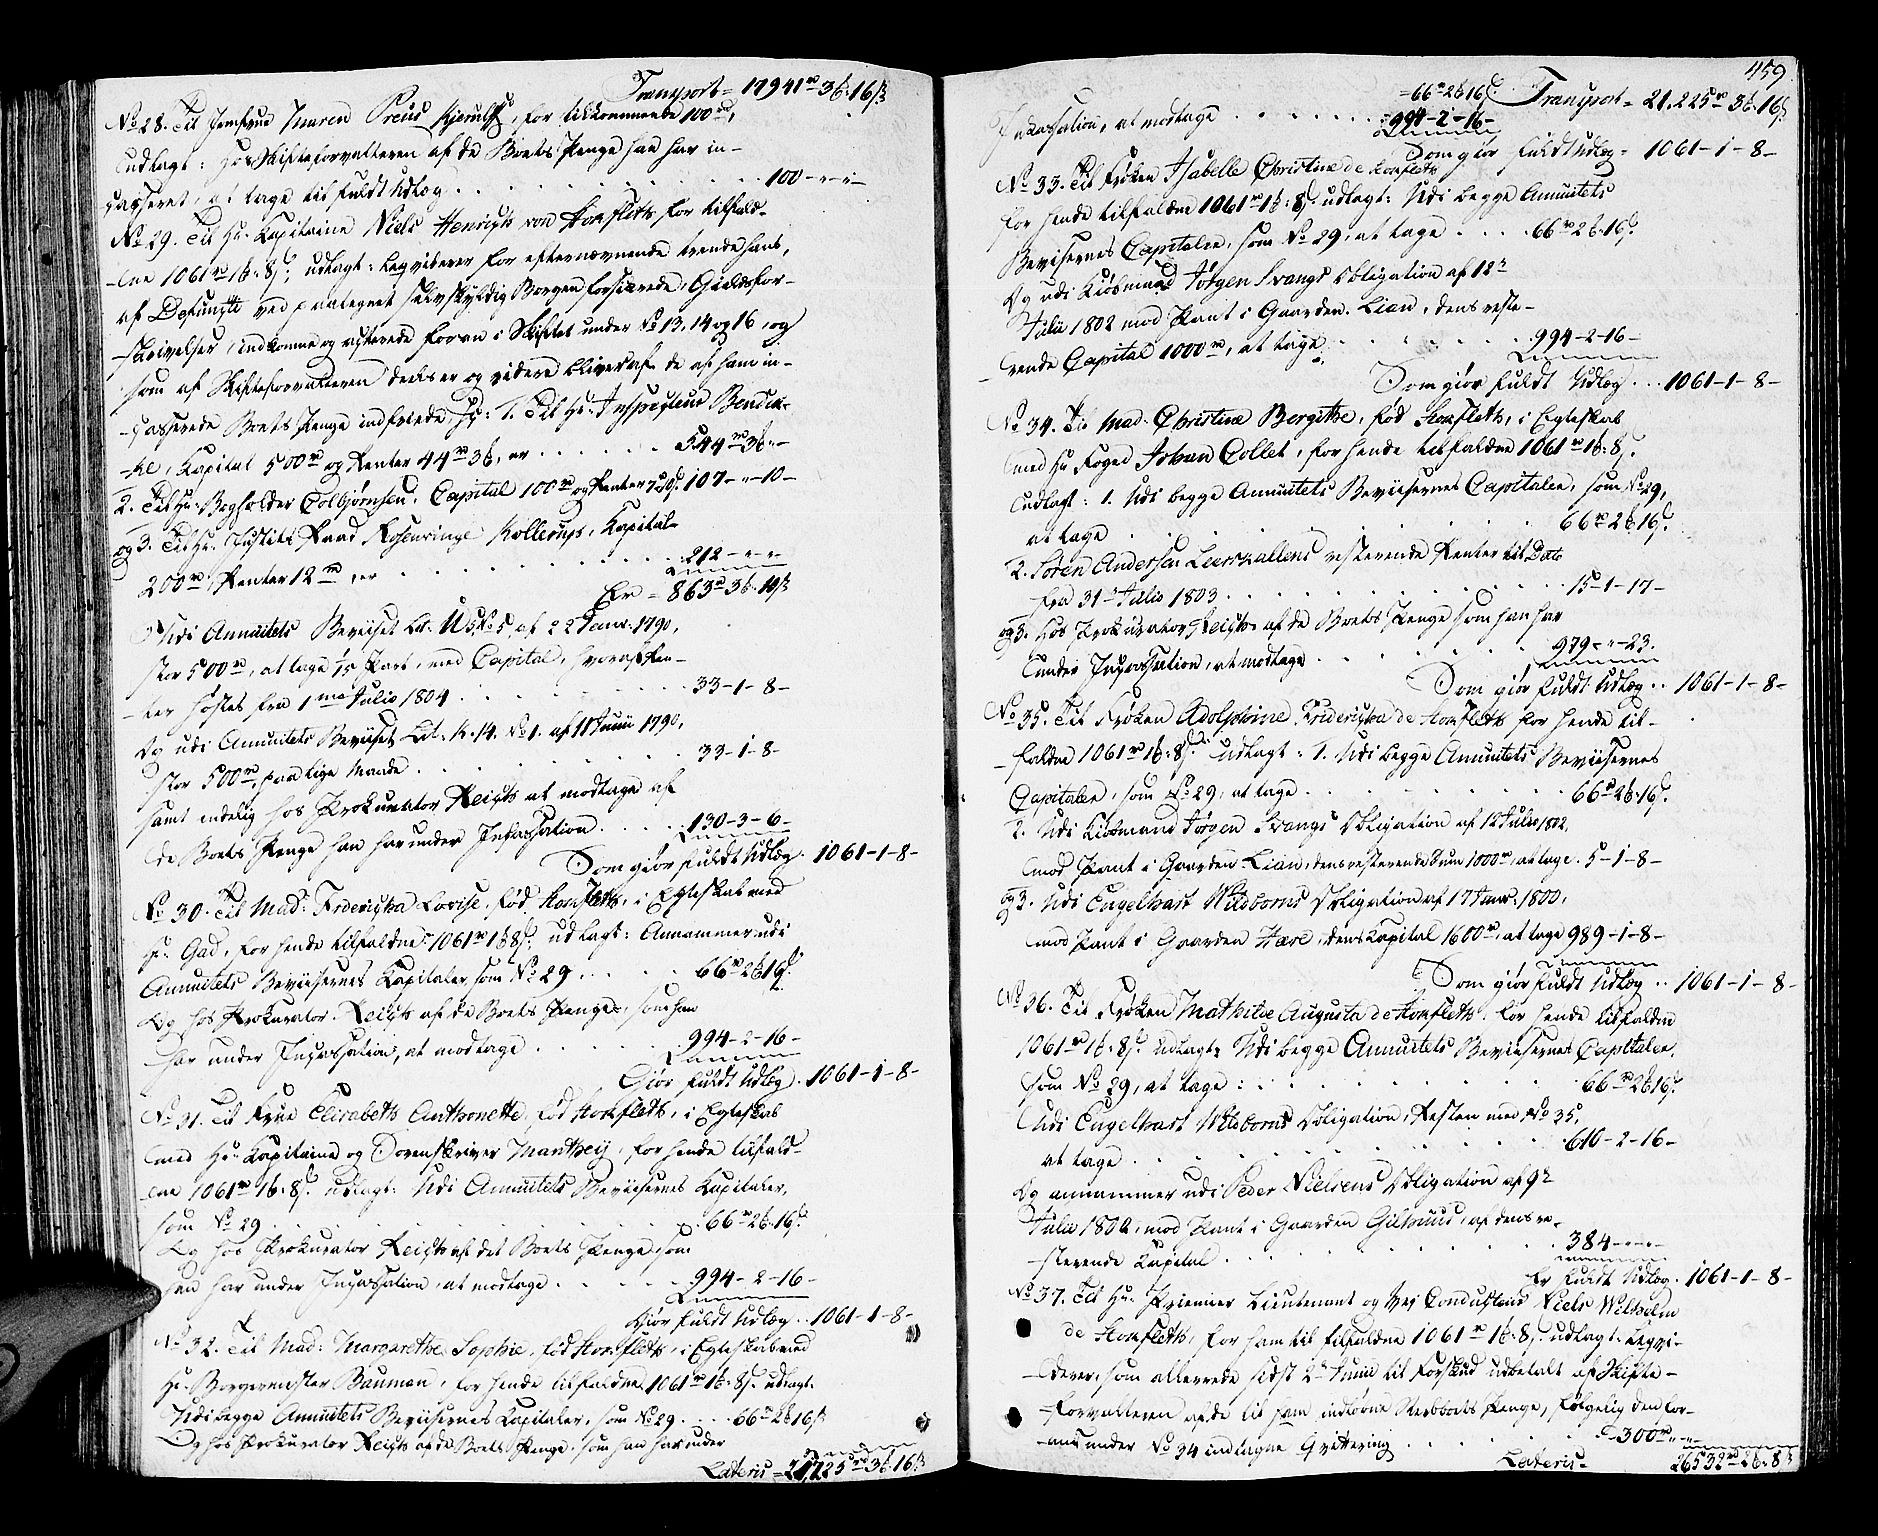 Transport = 17941 rd 3 b: 16 ß
No 28. Til Jomfrue Maren Preus Kjerulff, for tilkommende 100 rd,
udlagt: hos Skifteforvalteren af de Boets Penge han har in-
casseret, at tage til fuldt Udlæg . . . 100 - " - " -
No 29. Til Hr. Kapitaine Niels Henrich von Hoxfleth, for tilfald-
ene 1061 rd 1 b: 8 ß, udlagt: liqviderer for efternævnende trende hans,
af Defuncte ved paategnet selvskyldig Borgen forsikrede Gieldsfor-
skrivelser, indkomne og asterede foran i Skiftet under No 13, 14 og 16, og
som af Skifteforvalteren deels er og videre bliver af de af ham in-
casserede Boets Penge indfriede, sc: 1. Til Hr. Inspecteur Bendix-
ke, Kapital 500 rd og Renter 44 rd 3 b, er . . . 544 rd 3 b " -
2. Til Hr. Bogholder Colbjørnsen, Capital 100 rd og Renter 7 rd 10 ß 107 - " - 10 -
og 3. Til Hr. Justits Raad Rosenvinge Kollerup, Kapital
200 rd, Renter 12 rd, er . . . 212 - " - " -
Er = 863 rd 3 b. 10 ß
Udi Annuitets Beviiset Lit. U 5 No 5, af 22 Janr. 1790,
stor 500 rd, at tage 1/15 Part, med Capital, hvoraf Ren-
ter hæftes fra 1 ma Julio 1804 . . . 33 - 1 - 8 -
Og udi Annuitets Beviiset Lit: K. 14. No 1. af 11 Junii 1790,
stor 500 rd, paa lige Maade . . . 33 - 1 - 8 -
samt endelig hos Prokurator Reigh at modtage af
de Boets Penge han har under Incassation . . . 130 - 3 - 6 -
Som giør fuldt Udlæg . 1061 - 1 - 8 -
No 30. Til Mad: Friderica Lovise, fød Hoxfleth, i Egteskab med
Hr. Gad, for hende tilfaldne 1061 rd 1 b 8 ß, udlagt: Annammer udi
Annuitets Beviisernes Kapitaler, som No 29 . . . 66 rd 2 b 16 ß.
Og hos Prokurator Reigh af de Boets Penge, som han
har under Incassation, at modtage . . . 994 - 2 - 16 -
Giør fuldt Udlæg . 1061 - 1 - 8 -
No 31. Til Frue Elisabeth Anthonette, fød Hoxfleth, i Egteskab
med Hr. Kapitaine og Sorenskriver Manthey, for hende tilfald-
ene 1061 rd 1 b: 8 ß. udlagt: Udi Annuitets Beviisernes Kapitaler,
som No 29 . . . 66 rd 2 b. 16 ß.
Og hos Prokurator Reigh af det Boets Penge, som
han har under Incassation, at modtage . . . 994 - 2 - 16 -
Giør fuldt Udlæg . . 1061 - 1 - 8 -
No 32. Til Mad: Margarethe Sophie, fød Hoxfleth, i Egteskab med
Hr. Borgermester Bauman, for hende tilfaldne 1061 rd 1 b: 8 ß. udlagt:
Udi begge Annuitets Beviisernes Kapitaler, som No 29 . . . 66 rd 2 b 16 ß
Og hos Prokurator Reigh af de Boets Penge, som han har under
Lateris = 21225 rd 3 b. 16 ß
459.
= 66 rd 2 b 16 ß Transport = 21.225 rd 3 b. 16 ß
Incassation, at modtage . . . 994 - 2 - 16 -
Som giør fuldt Udlæg = 1061 - 1 - 8 -
No 33. Til Frøken Isabelle Christine de Hoxfleth
for hende tilfaldne 1061 rd 1 b: 8 ß. udlagt: Udi begge Annuitets
Bevisernes Capitaler, som No 29, at tage . . . 66 rd 2 b. 16 ß.
Og udi Kiøbmand Jørgen Svangs Obligation af 12 te
Julii 1802 mod Pant i Gaarden Lian, dens reste-
rende Capital 1000 rd, at tage . . . 994 - 2 - 16 -
Som giør fuldt Udlæg . . . 1061 - 1 - 8 -
No 34. Til Mad. Christine Bergithe, fød Hoxfleth, i Egteskab
med Hr Foged Johan Collet, for hende tilfaldne 1061 rd 1 b: 8 ß.
udlagt: 1. Udi begge Annuitets Beviisernes Capitaler, som No 29,
at tage . . . 66 rd 2 b 16 ß.
2. Søren Andersen Leerskallens resterende Renter til Dato
fra 31 te Julio 1803 . . . 15 - 1 - 17 -
og 3. hos Prokurator Reigh af de Boets Penge som han har
under Incassation, at modtage . . . 979 - " - 23.
Som giør fuldt Udlæg . . 1061 - 1 - 8 -
No 35. Til Frøken Adolphine Friderica de Hoxfleth for hende til-
faldne 1061 rd 1 b: 8 ß. udlagt: 1. Udi begge Annuitets Beviisernes
Capitaler, som No 29, at tage . . . 66 rd 2 b. 16 ß.
2. Udi Kiøbmand Jørgen Svangs Obligation af 12 Julio 1802,
mod Pant i Gaarden Lian, dens resterende Sum 1000 rd, at tage . 5 - 1 - 8 -
og 3. Udi Engelhart Wildborns Obligation af 17 Janr: 1800,
mod Pant i Gaarden Hære, dens Kapital 1600 rd, at tage 989 - 1 - 8 -
Som giør fuldt Udlæg . . 1061 - 1 - 8 -
No 36. Til Frøken Mathilde Augusta de Hoxfleth, for hende tilfaldne
1061 rd 1 b: 8 ß. udlagt: Udi begge Annuitets Beviisernes Capitaler,
som No 29, at tage: . . . 66 rd 2 b 16 ß.
Udi Engelhart Wildborns Obligation, Resten med No 35,
at tage . . . 610 - 2 - 16 -
Og annammer udi Peder Nielsens Obligation af 9 te
Julii 1802, mod Pant i Gaarden Gilhuus, af dens re-
sterende Kapital . . . 384 - " - " -
Er fuldt Udlæg . 1061 - 1 - 8 -
No 37. Til Hr. Premier Lieutenant og Vej Conducteur Niels Wilhelm
de Hoxfleth, for ham til tilfaldne 1061 rd 1 b: 8 ß. udlagt: Liqvi-
derer, som allerrede sidst 2 de Junii til Forskud udbetalt af Skifte-
forvalteren af de til ham indløbne Sterbboets Penge, følgelig den for-
ant under No 34 indtagne Qvittering . . . 300 rd " - " -
Lateris = 26532 rd 2 b: 8 ß